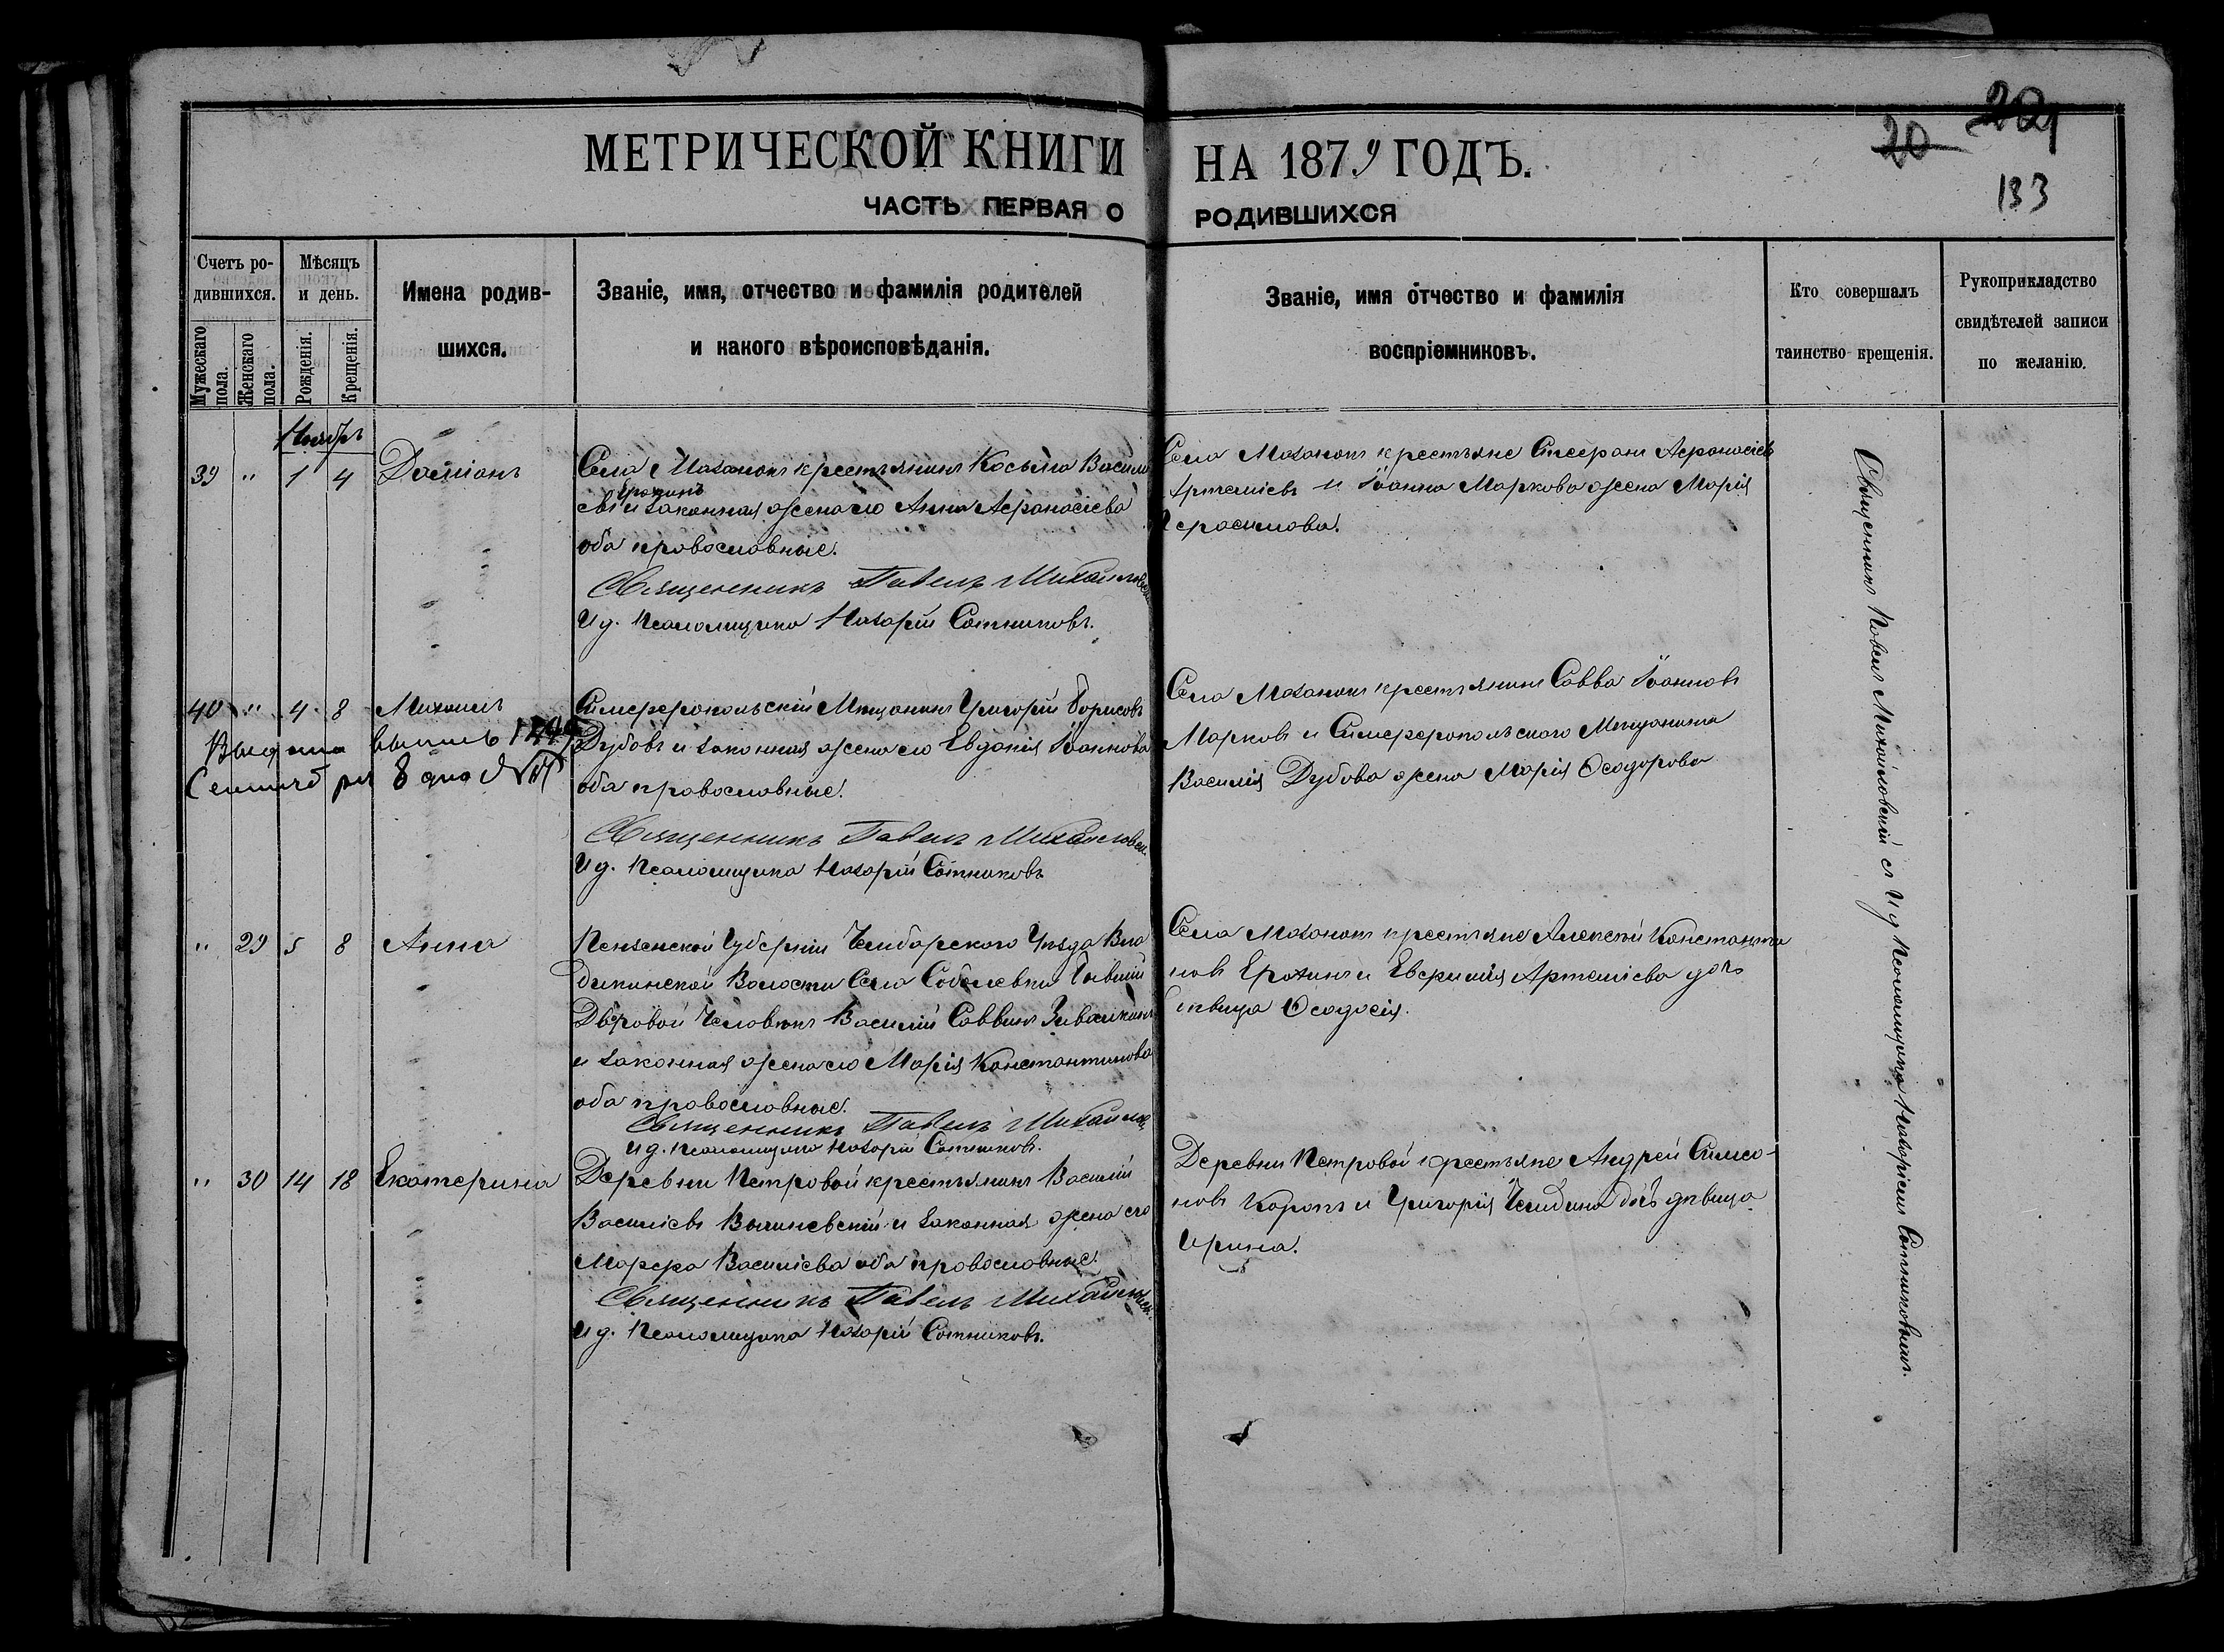 МЕТРИЧЕСКОЙ КНИГИ НА 1879 ГОДЪ.
ЧАСТЬ ПЕРВАЯ О РОДИВШИХСЯ
20
133
Счетъ ро-
дившихся.
Мужескаго пола.
Женскаго пола.
Мѣсяцъ
и день.
Рожденія.
Крещенія.
Имена родив-
шихся.
Званіе, имя, отчество и фамилія родителей
и какого вѣроисповѣданія.
Званіе, имя отчество и фамилія
воспріемниковъ.
Кто совершалъ
таинство крещенія.
Рукоприкладство
свидѣтелей записи
по желанію.
Ноябрь
39 " 1 4 Даміанъ
Села Мазанокъ крестьянинъ Косьма Василі
Ерохинъ
евъ и законная жена его Анна Афанасіева
оба православные.
Священникъ Павелъ Михайловск
И д. Псаломщика Назарій Сотниковъ.
Села Мазанокъ крестьяне Стефанъ Афанасіевъ
Артеміевъ и Іоанна Маркова жена Марія
Герасимова.
40 " 4 8 Михаилъ
Выдана выпись
Сентября 8 дня
Симферопольскій Мещанинъ Григорій Борисовъ
Дубовъ и законная жена его Евдокія Іоаннова
оба православные.
Священникъ Павелъ Михайловск.
И д. Псаломщика Назарій Сотниковъ
Села Мазанокъ крестьянинъ Савва Іоанновъ
Марковъ и Симферопольскаго Мещанина
Василія Дубова жена Марія Ѳеодорова
" 29 5 8 Анна
Пензенской Губерніи Чембарскаго Уѣзда Вла
дыкинской Волости Села Соболевки бывшій
Дворовой Человѣкъ Василій Саввинъ Зивалкинъ
и законная жена его Марія Константинова
оба православные.
Священникъ Павелъ Михайлов
И д. Псаломщика Назарій Сотниковъ.
Села Мазанокъ крестьяне Алексѣй Константи
новъ Ерохинъ и Евфимія Артеміева дочь
дѣвица Ѳеодосія.
" 30 14 18 Екатерина
Деревни Петровой крестьянинъ Василій
Василіевъ Вылиневскій и законная жена его
Марфа Василіева оба православные.
Священникъ Павелъ Михайловск.
И д. Псаломщика Назарій Сотниковъ.
Деревни Петровой крестьяне Андрей Симео-
новъ Каропъ и Григорія Чемдина дочь дѣвица
Ирина.
Священникъ Павелъ Михайловскій съ И д Псаломщика Назаріемъ Сотниковымъ.